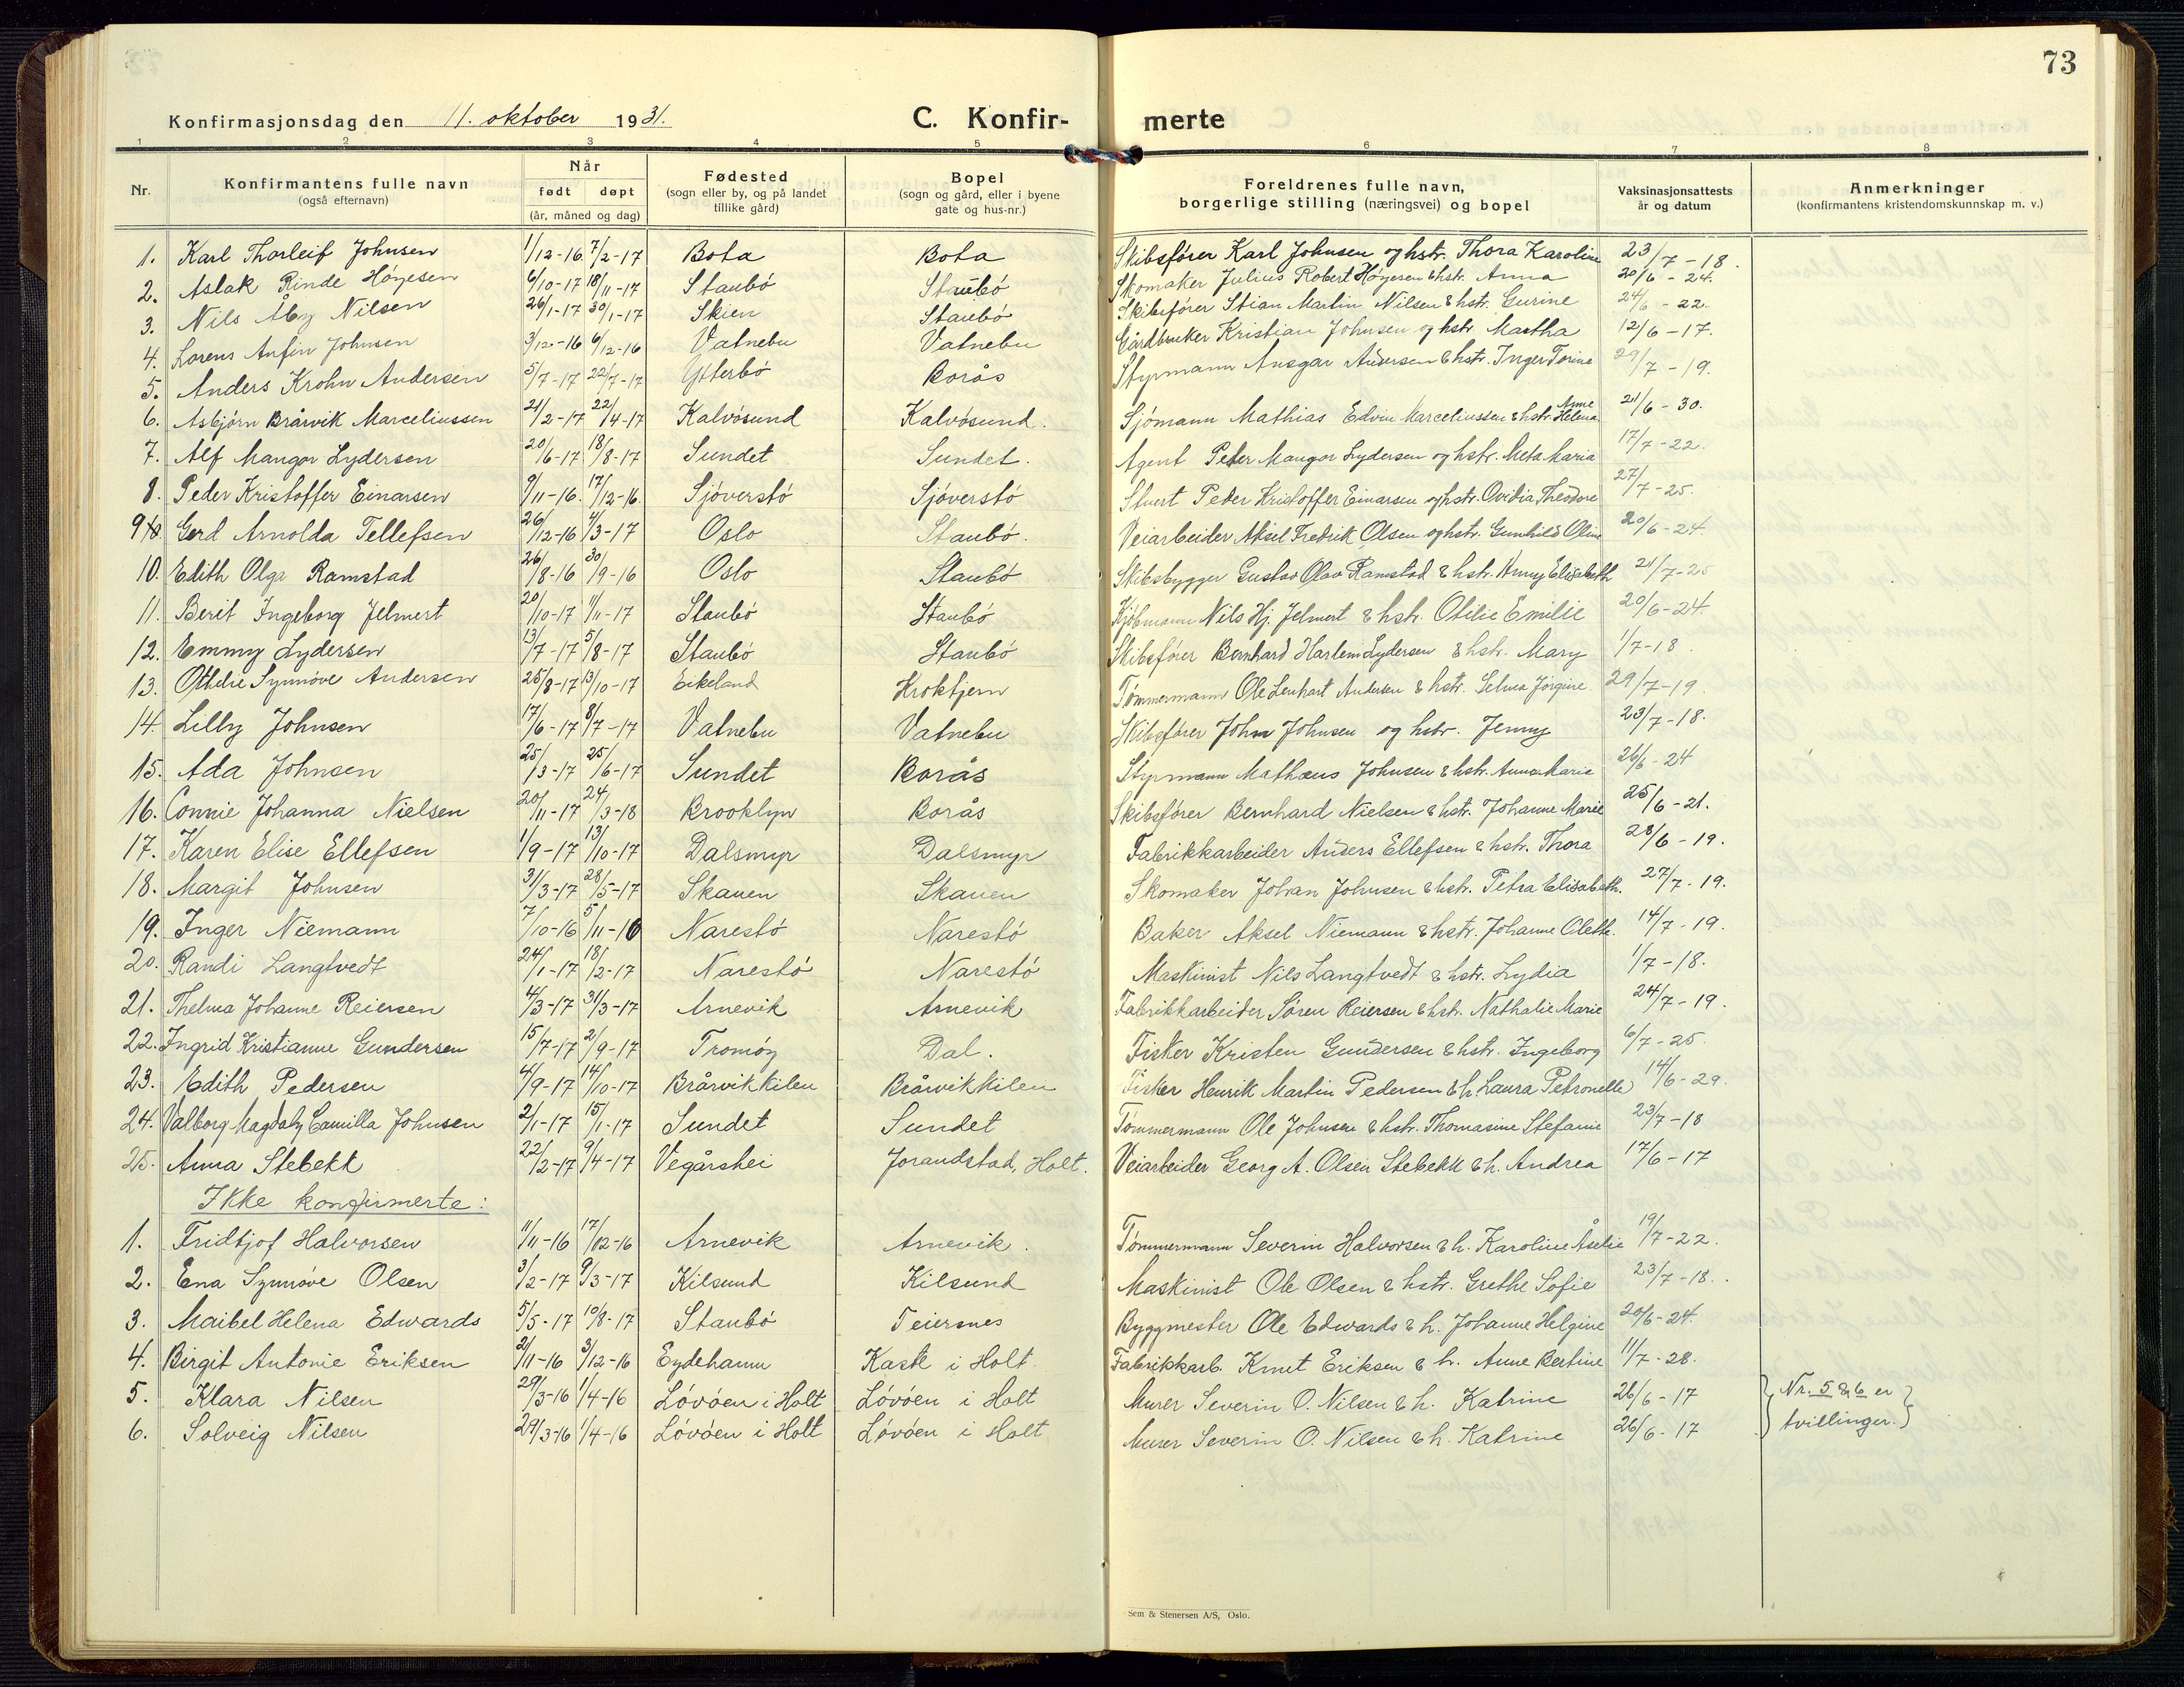 73
Konfirmasjonsdag den 11. oktober 1931.
C. Konfir- merte
1 2 3 4 5 6 7 8
Nr. Konfirmantens fulle navn (også efternavn) Når født døpt (år, måned og dag) Fødested (sogn eller by, og på landet tillike gård) Bopel (sogn og gård, eller i byene gate og hus-nr.) Foreldrenes fulle navn, borgerlige stilling (næringsvei) og bopel Vaksinasjonsattests år og datum Anmerkninger (konfirmantens kristendomskunnskap m. v.)
1. Karl Thorleif Johnsen 1/12-16 7/2-17 Bota Bota Skibsfører Karl Johnsen og hstr. Thora Karoline 23/7-18.
2. Aslak Rinde Høyesen 6/10-17 18/11-17 Staubø Staubø Skomaker Julius Robert Høyesen & hstr. Anna 20/6-24.
3. Nils Åby Nilsen 26/1-17 30/1-17 Skien Staubø Skibsfører Stian Martin Nilsen & hstr. Gurine 24/6-22.
4. Lorens Anfin Johnsen 3/12-16 6/12-16 Vatnebu Vatnebu Gårdbruker Kristian Johnsen og hstr. Martha 12/6-17.
5. Anders Krohn Andersen 5/7-17 22/7-17 Ytterbø Borås Styrmann Ansgar Andersen & hstr. Inger Torine 29/7-19.
6. Asbjörn Bråvik Marceliussen 21/2-17 22/4-17 Kalvøsund Kalvøsund. Sjømann Mathias Edvin Marceliussen & hstr. Anne Helena 21/6-30.
7. Alf Mangor Lydersen 20/6-17 18/8-17 Sundet Sundet. Agent Peter Mangor Lydersen og hstr. Meta Maria 17/7-22.
8. Peder Kristoffer Einarsen 9/11-16. 17/12-16. Sjøverstø Sjøverstø Stuert Peder Kristoffer Einarsen og hstr. Ovidia Theodore 27/7-25.
9. Gerd Arnolda Tellefsen 26/12-16 4/3-17 Oslo Staubø. Veiarbeider Aksel Fredrik Olsen og hstr. Gunhild Oline 20/6-24.
10. Edith Olga Ramstad 26/8-16 30/9-16 Oslo Staubø Skibsbygger Gustav Olav Ramstad & hstr. Anny Elisabeth 21/7-25
11. Berit Ingeborg Jelmert 20/10-17 11/11-17 Staubø Staubø Kjøbmann Nils Hj. Jelmert & hstr. Otilie Emilie 20/6-24.
12. Emmy Lydersen 13/7-17 5/8-17 Staubø Staubø Skibsfører Bernhard Harlem Lydersen & hstr. Mary 1/7-18.
13. Othelie Synnøve Andersen 25/8-17 13/10-17 Eikeland Kroktjern Tømmermann Ole Lenhart Andersen & hstr. Selma Jörgine 29/7-19.
14. Lilly Johnsen 17/6-17 8/7-17 Vatnebu Vatnebu Skibsfører John Johnsen og hstr. Jenny 23/7-18.
15. Ada Johnsen 25/3-17 25/6-17 Sundet Borås Styrmann Mathæus Johnsen & hstr. Anna Marie 26/6-24
16. Connie Johanna Nielsen 20/11-17 24/3-18 Brooklyn Borås Skibsfører Bernhard Nielsen & hstr. Johanne Marie 25/6-21.
17. Karen Elise Ellefsen 1/9-17 13/10-17 Dalsmyr Dalsmyr Fabrikkarbeider Anders Ellefsen & hstr. Thora 28/6-19.
18. Margit Johnsen 31/3-17 28/5-17 Skauen Skauen Skomaker Johan Johnsen & hstr. Petra Elisabeth. 27/7-19.
19. Inger Niemann 7/10-16 5/11-16 Narestø Narestø Baker Aksel Niemann & hstr. Johanne Olette. 14/7-19.
20. Randi Langtvedt 24/1-17 18/2-17 Narestø Narestø Maskinist Nils Langtvedt & hstr. Lydia 1/7-18.
21. Thelma Johanne Reiersen 4/3-17 31/3-17 Arnevik Arnevik Fabrikkarbeider Søren Reiersen & hstr. Nathalie Marie 24/7-19.
22. Ingrid Kristianne Gundersen 15/7-17 2/9-17 Tromøy Dal. Fisker Kristen Gundersen & hstr. Ingeborg 6/7-25.
23. Edith Pedersen 4/9-17 14/10-17 Bråvikkilen Bråvikkilen Fisker Henrik Martin Pedersen & h. Laura Petronelle 14/6-29.
24. Valborg Magdaly Camilla Johnsen 2/1-17 15/1-17 Sundet Sundet Tømmermann Ole Johnsen & hstr. Thomasine Stefanie 23/7-18
25. Anna Stebekk 22/2-17 9/4-17 Vegårshei Jorandstad, Holt. Veiarbeider Georg A. Olsen Stebekk & h. Andrea 17/6-17
Ikke konfirmerte:
1. Fridtjof Halvorsen 11/11-16 17/12-16 Arnevik Arnevik. Tømmermann Severin Halvorsen & h. Karoline Åselie 19/7-22.
2. Ena Synnøve Olsen 3/2-17 9/3-17 Kilsund Kilsund Maskinist Ole Olsen & hstr. Grethe Sofie 23/7-18.
3. Maibel Helena Edwards 5/5-17 10/8-17 Staubø Teiersnes Byggmester Ole Edwards & h. Johanne Helgine 20/6-24.
4. Birgit Antonie Eriksen 21/11-16 3/12-16 Eydehamn Kastet i Holt. Fabrikkarb. Knut Eriksen & h. Anne Bertine 11/7-28.
5. Klara Nilsen 29/3-16 1/4-16 Løvøen i Holt Løvøen i Holt Murer Severin O. Nilsen & h. Katrine 26/6-17 Nr. 5 & 6 er
6. Solveig Nilsen 29/3-16 1/4-16 Løvøen i Holt Løvøen i Holt Murer Severin O. Nilsen & h. Katrine 26/6-17 tvillinger.
Sem & Stenersen A/S, Oslo.